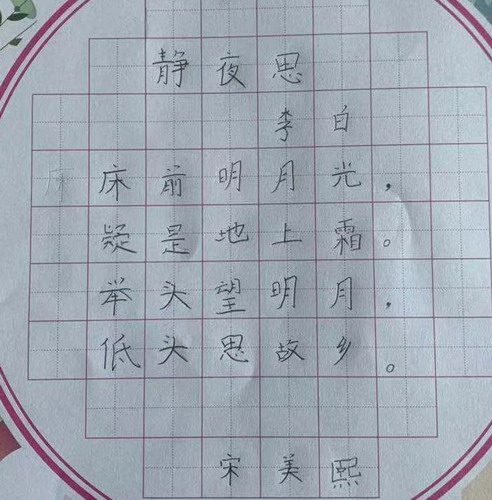 静夜思
李白
床前明月光，
疑是地上霜。
举头望明月，
低头思故乡。
宋美熙